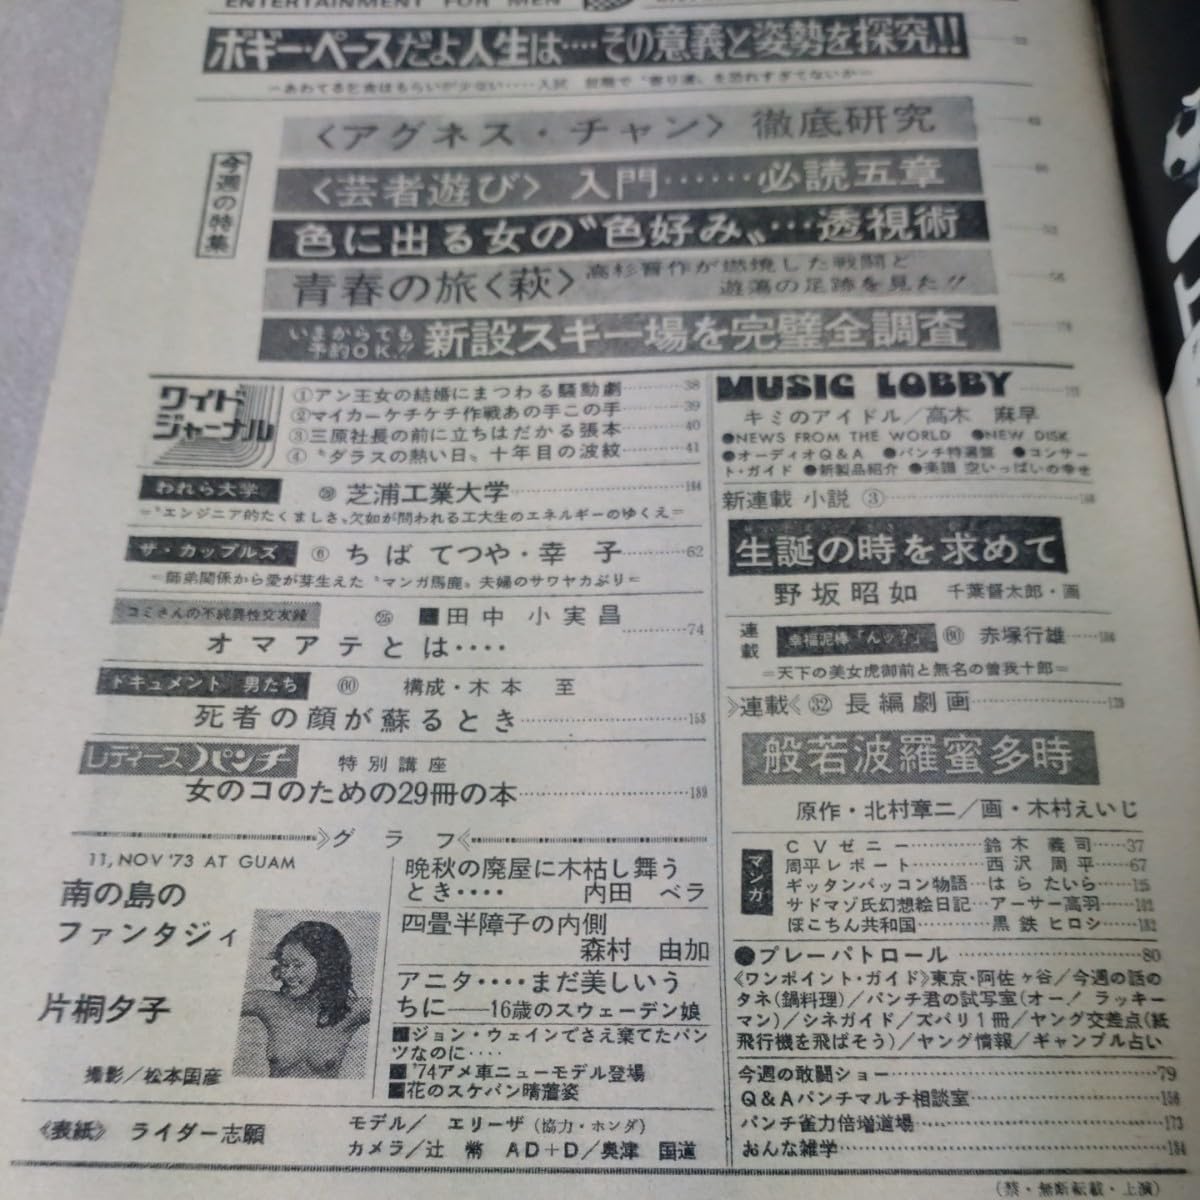 ENTERTAINMENT FOR MEN
ボギー・ペースだよ人生は‥‥その意義と姿勢を探究!!
今週の特集
〈アグネス・チャン〉徹底研究
〈芸者遊び〉入門‥‥‥必読五章
色に出る女の〝色好み〟‥‥透視術
青春の旅〈萩〉高杉晋作が燃焼した戦闘と
遊蕩の足跡を見た!!
いまからでも
予約OK.!! 新設スキー場を完璧全調査
ワイドジャーナル
①アン王女の結婚にまつわる騒動劇………38
②マイカーケチケチ作戦あの手この手………39
③三原社長の前に立ちはだかる張本………40
④〝ダラスの熱い日〟十年目の波紋………41
われら大学 芝浦工業大学
=〝エンジニア的たくましさ〟欠如が問われる工大生のエネルギーのゆくえ=
ザ・カップルズ ⑥ ちば てつや・幸 子………62
=師弟関係から愛が芽生えた〝マンガ馬鹿〟夫婦のサワヤカぶり=
コミさんの不純異性交友録 ㉕ 田中 小実昌
オマアテとは‥‥………74
ドキュメント 男たち ㊿ 構成・木本 至
死者の顔が蘇るとき………158
レディースパンチ 特別講座
女のコのための29冊の本………189
》グラフ《
11, NOV '73 AT GUAM
南の島の
ファンタジィ
片桐夕子
撮影/松本国彦
晩秋の廃屋に木枯し舞う
とき‥‥ 内田 ベラ
四畳半障子の内側
森村 由加
アニタ‥‥まだ美しいう
ちに──16歳のスウェーデン娘
■ジョン・ウェインでさえ棄てたパン
ツなのに‥‥
■'74アメ車ニューモデル登場
■花のスケバン晴着姿
《表紙》 ライダー志願
モデル/ エリーザ(協力・ホンダ)
カメラ/辻 幣 AD+D/奥津 国道
MUSIC LOBBY
キミのアイドル/高木 麻早
●NEWS FROM THE WORLD ●NEW DISK
●オーディオQ&A ●パンチ特選盤 ●コンサー
ト・ガイド ●新製品紹介 ●楽譜 空いっぱいの幸せ
新連載 小説 ③
生誕の時を求めて
野坂昭如 千葉督太郎・画
連載 幸福泥棒「んッ?」 赤塚行雄
=天下の美女虎御前と無名の曽我十郎=
》連載《 ㉜ 長編劇画
般若波羅蜜多時
原作・北村章二/画・木村えいじ
マンガ
CVゼニー………鈴木 義司……37
周平レポート………西沢 周平……67
ギッタンバッコン物語…はら たいら
サドマゾ氏幻想絵日記…アーサー高羽
ぽこちん共和国………黒鉄 ヒロシ
●プレーパトロール………80
《ワンポイント・ガイド》東京・阿佐ヶ谷/今週の話の
タネ(鍋料理)/パンチ君の試写室(オー! ラッキー
マン)/シネガイド/ズバリ1冊/ヤング交差点(紙
飛行機を飛ばそう)/ヤング情報/ギャンブル占い
今週の敢闘ショー………79
Q&Aパンチマルチ相談室
パンチ雀力倍増道場………173
おんな雑学
(禁・無断転載・上演)